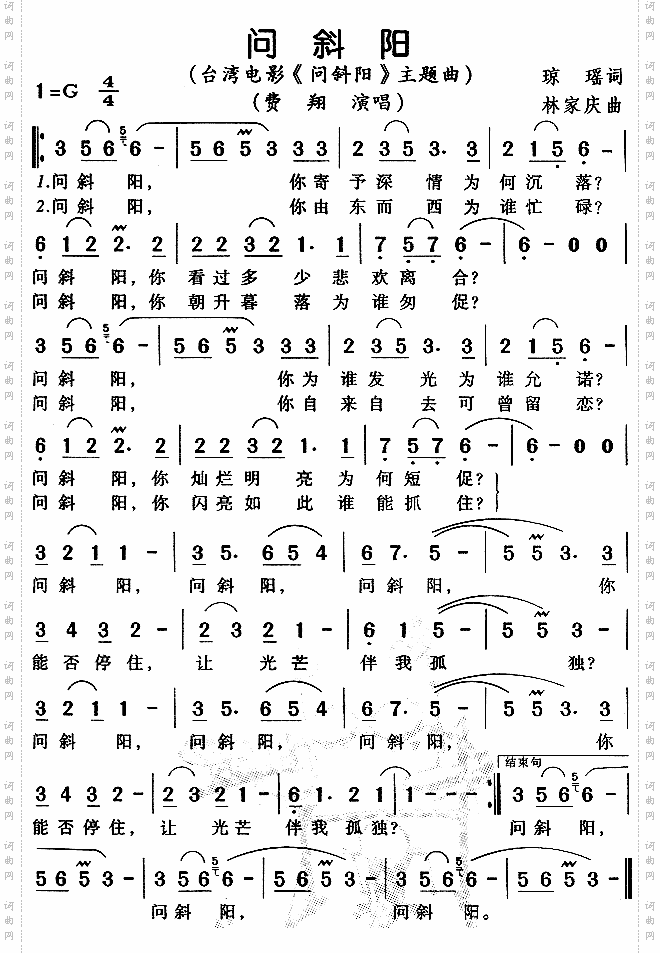 问斜阳
(台湾电影《问斜阳》主题曲) 琼 瑶词
1=G 4/4 (费 翔 演唱) 林家庆曲
3 5 6 6 5 6 - | 5 6 5 3 3 3 3 | 2 3 5 3. 3 | 2 1 5 6 - |
1.问斜 阳, 你寄予深 情为何沉 落?
2.问斜 阳, 你由东而 西为谁忙 碌?
6 1 2 2 2. 2 | 2 2 3 2 1. 1 | 7 5 7 6 - | 6 - 0 0 |
问斜 阳,你 看过多 少悲欢离 合?
问斜 阳,你 朝升暮 落为谁匆 促?
3 5 6 6 5 6 - | 5 6 5 3 3 3 3 | 2 3 5 3. 3 | 2 1 5 6 - |
问斜 阳, 你为谁发 光为谁允 诺?
问斜 阳, 你自来自 去可曾留 恋?
6 1 2 2 2. 2 | 2 2 3 2 1. 1 | 7 5 7 6 - | 6 - 0 0 |
问斜 阳,你 灿烂明 亮为何短 促?
问斜 阳,你 闪亮如 此谁能抓 住?
3 2 1 1 - | 3 5. 6 5 4 | 6 7. 5 - | 5 5 3. 3 |
问斜 阳, 问斜 阳, 问斜阳, 你
3 4 3 2 - | 2 3 2 1 - | 6 1 5 - | 5 5 3 - |
能否停住, 让 光芒 伴我孤 独?
3 2 1 1 - | 3 5. 6 5 4 | 6 7. 5 - | 5 5 3. 3 |
问斜 阳, 问斜 阳, 问斜阳, 你
结束句
3 4 3 2 - | 2 3 2 1 - | 6 1. 2 1 | 1 - - - :| 3 5 6 6 5 6 - |
能否停住, 让 光芒 伴我孤独? 问斜 阳,
5 6 5 3 - | 3 5 6 6 5 6 - | 5 6 5 3 - | 3 5 6 6 5 6 - | 5 6 5 3 - ‖
问斜 阳, 问斜 阳。
词曲网